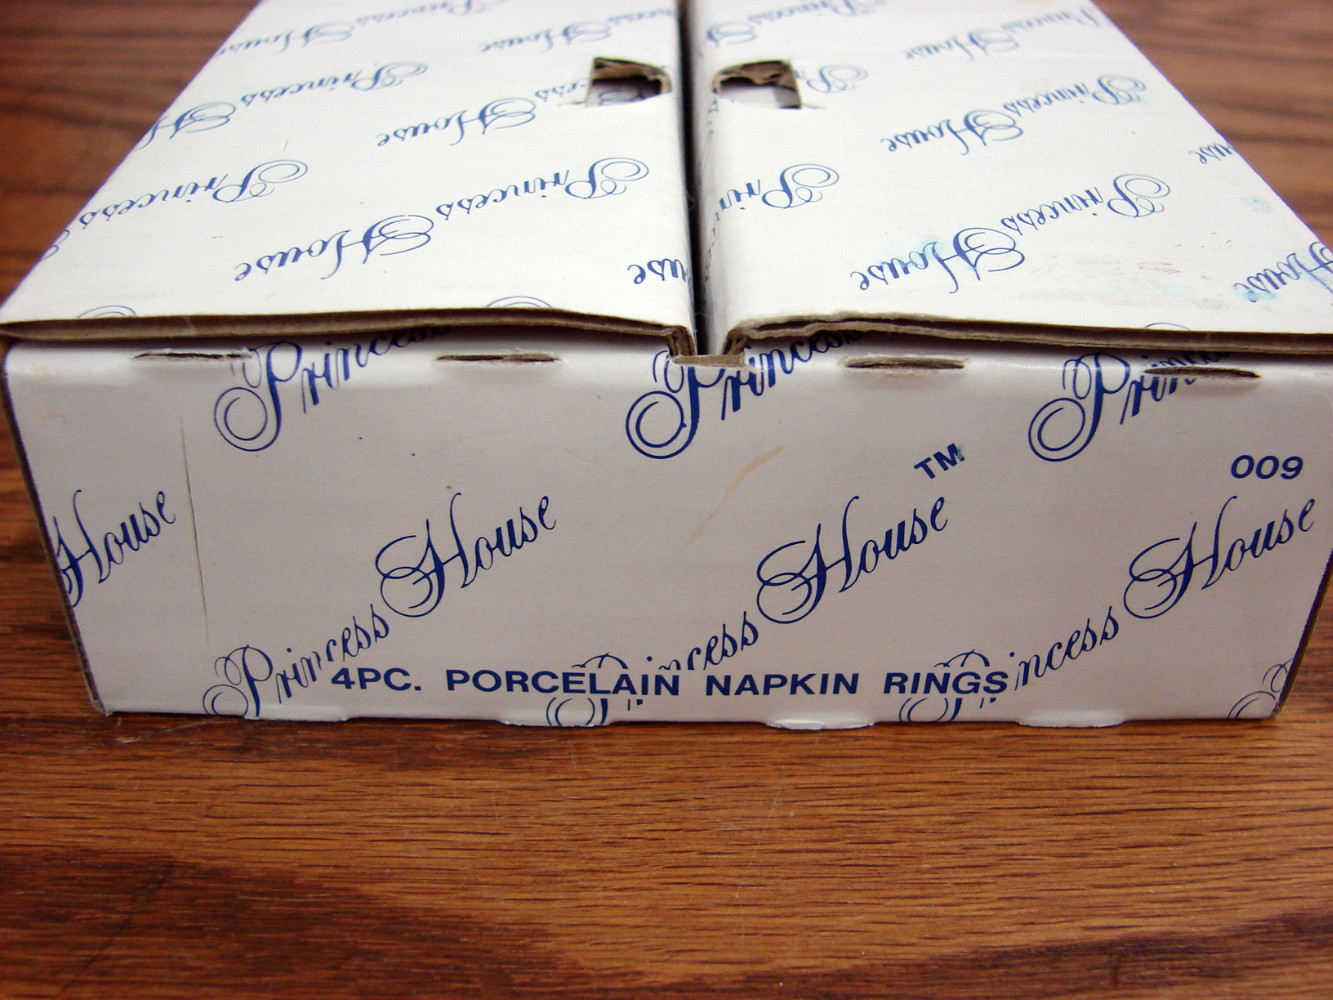 Princess House
Princess House
Princess House
Princess House
Princess House
Princess House
Princess
Princess
Princess
TM
009
House
Princess House
Princess House
Princess House
4PC. PORCELAIN NAPKIN RINGS